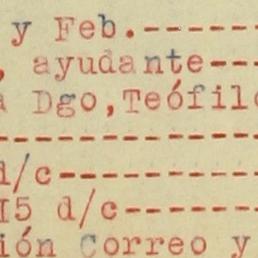 y Feb.------
, ayudante---
a Dgo,Teófilo
-------------
d/c----------
I5 d/c-------
ión Correo y